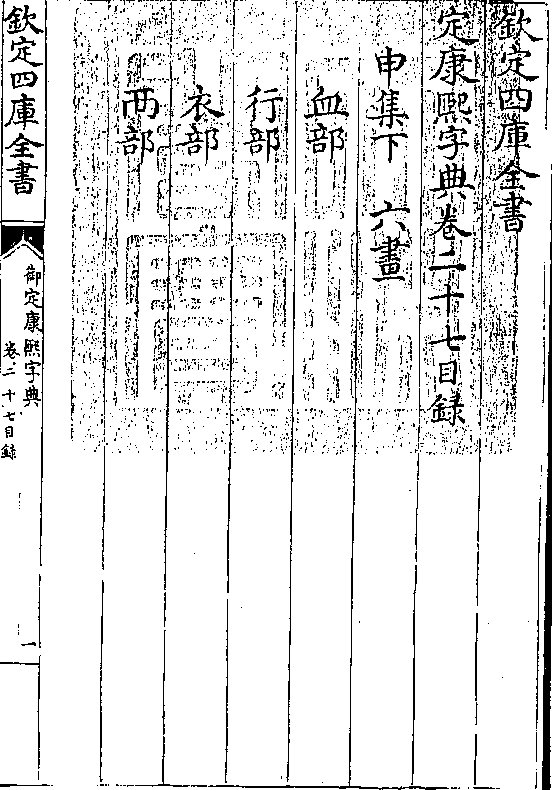 欽定四庫全書
定康熙字典卷二十七目録
申集下 六畫
血部
行部
衣部
襾部
欽定四庫全書
御定康熙字典
卷二十七目録
一